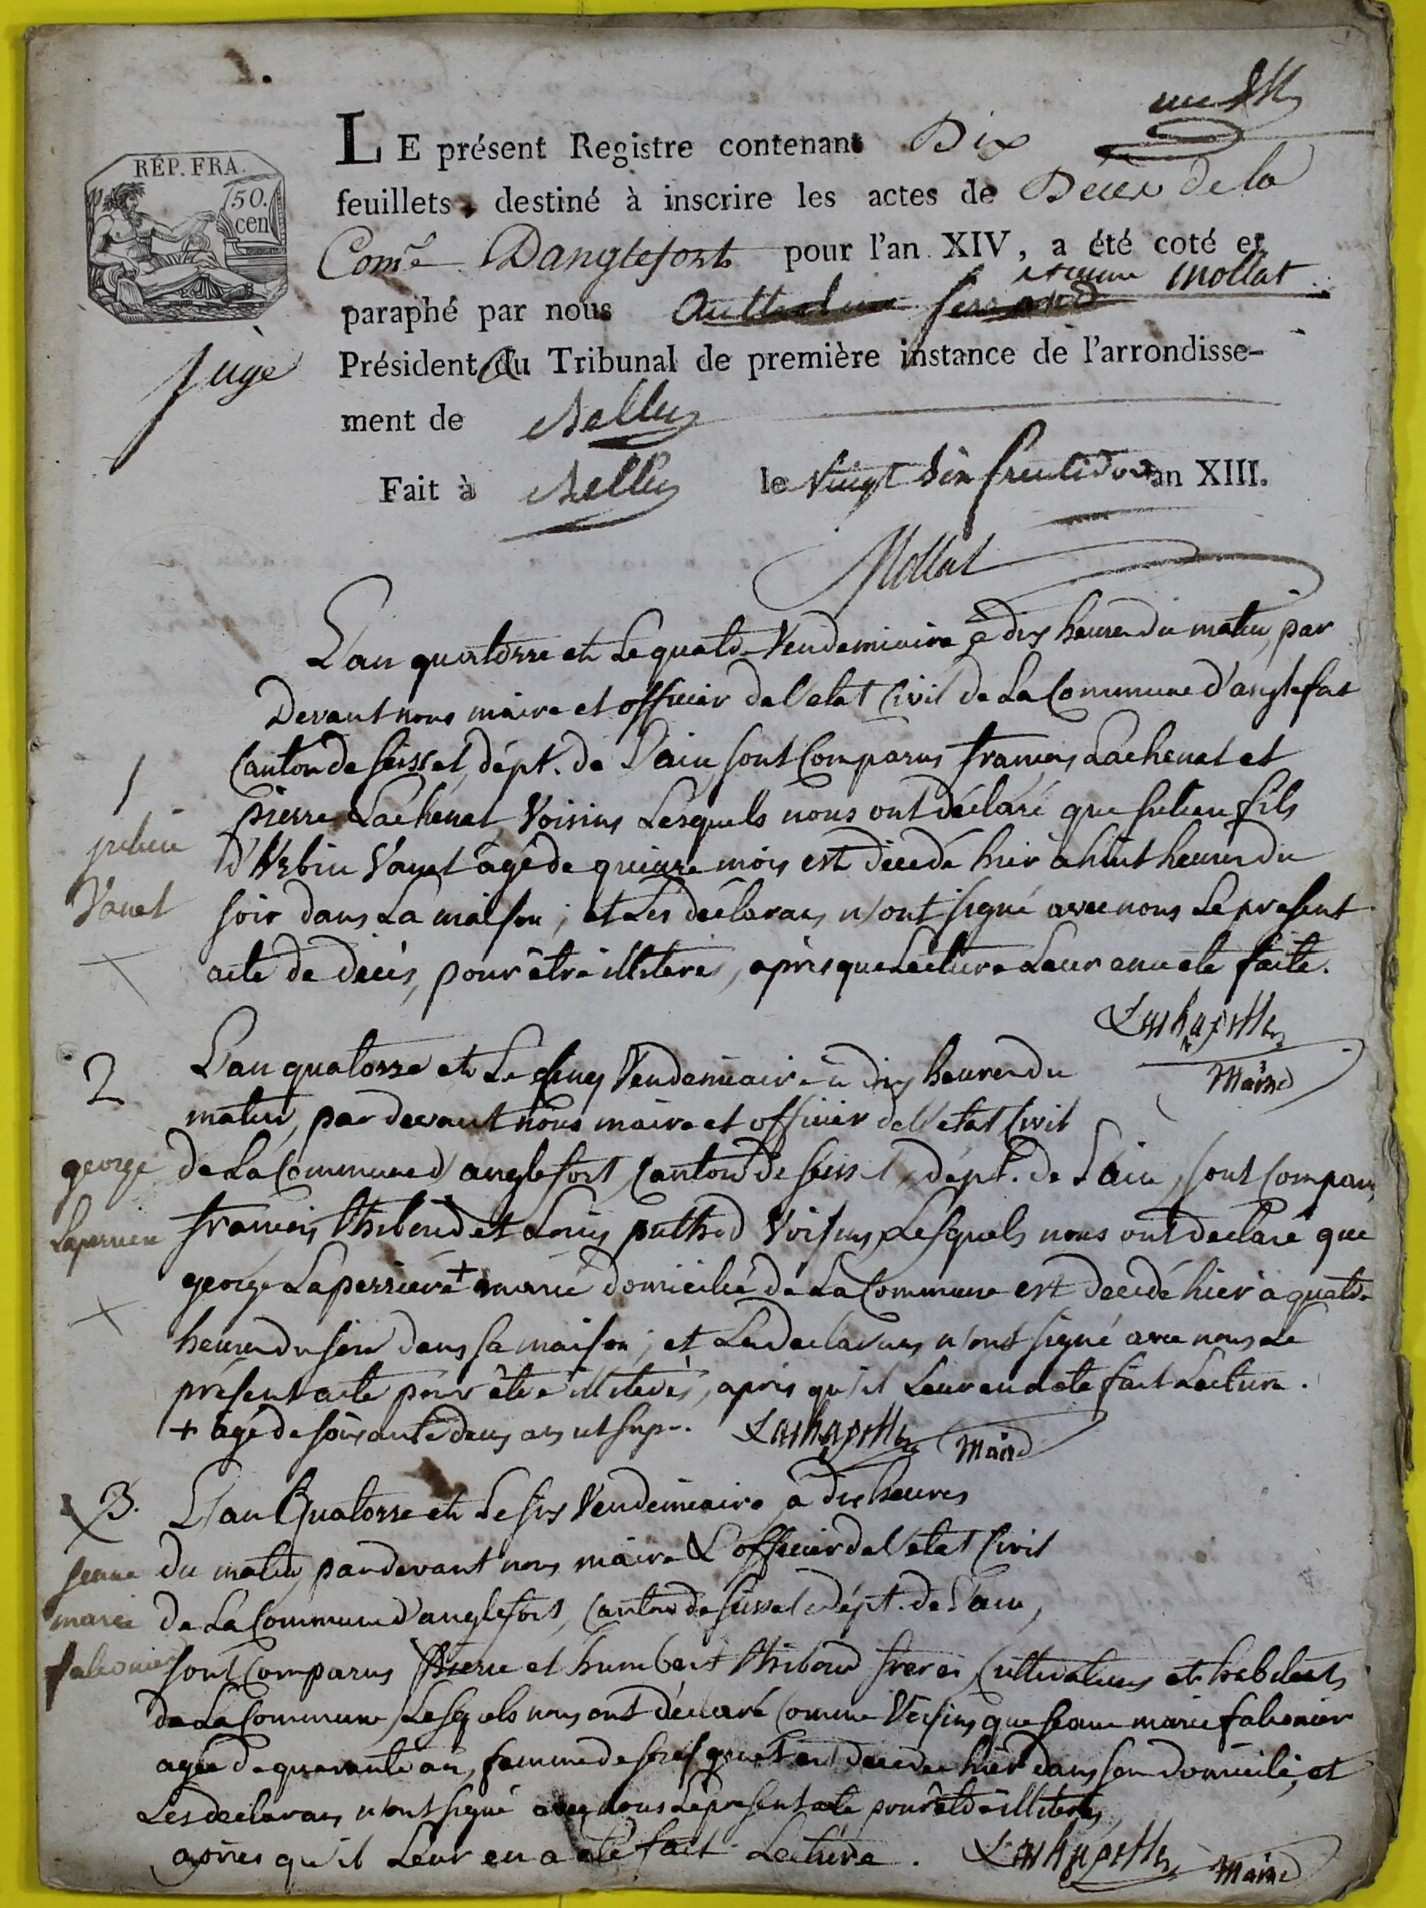 RÉP. FRA.
50.
cen
LE présent Registre contenant Dix
feuillets, destiné à inscrire les actes de Décès de la
Comᵉ Danglefort pour l'an XIV, a été coté et
paraphé par nous Mollat
Président du Tribunal de première instance de l'arrondisse-
juge
ment de Belley
Fait à Belley le vingt Six fructidor an XIII.
Mollat
L'an quatorze et le quatre Vendemiaire à dix heures du matin, par
Devant nous maire et officier de l'etat Civil de La Commune d'anglefort
Canton de seissel, dépt. de L'ain, sont Comparus françois Lachenal et
1
pierre Lachenal Voisins Lesquels nous ont déclaré que julien fils
julien
d'Urbin Vanet âgé de quinze mois est décédé hier à huit heures du
Vanet
soir dans La maison; et Les déclarans n'ont signé avec nous Le present
acte de décès, pour être illiterés, après que Lecture Leur en a été faite.
Lachapelle
Maire
2
L'an quatorze et Le cinq Vendemiaire à dix heures du
matin, par devant nous maire et officier de l'etat Civil
george
de La Commune d'anglefort, Canton de seissel, dépt. de L'ain, sont Comparus
Laperriere
françois thiboud et Louis puthod Voisins, Lesquels nous ont déclaré que
george Laperriere + marié domicilié de La Commune est décédé hier à quatre
heures du soir dans sa maison; et Les declarans n'ont signé avec nous Le
présent acte pour être illiterés, après qu'il Leur en a été fait Lecture.
+ agé de soixante deux ans ut sup.
Lachapelle Maire
3.
L'an Quatorze et Le six Vendemiaire, à dix heures
jeanne
du matin, pardevant nous maire & officier de l'etat Civil
marie
de La Commune d'anglefort, Canton de seissel dépt. de L'ain,
falconier
sont Comparus pierre et humbert thiboud freres, Cultivateurs et habitants
de La Commune, Lesquels nous ont déclaré Comme Voisins que jeanne marie falconier
agée de quarante ans, femme de est décédée hier dans son domicile, et
Les declarans n'ont signé avec nous Le present acte pour être illiterés,
après qu'il Leur en a été fait Lecture.
Lachapelle Maire